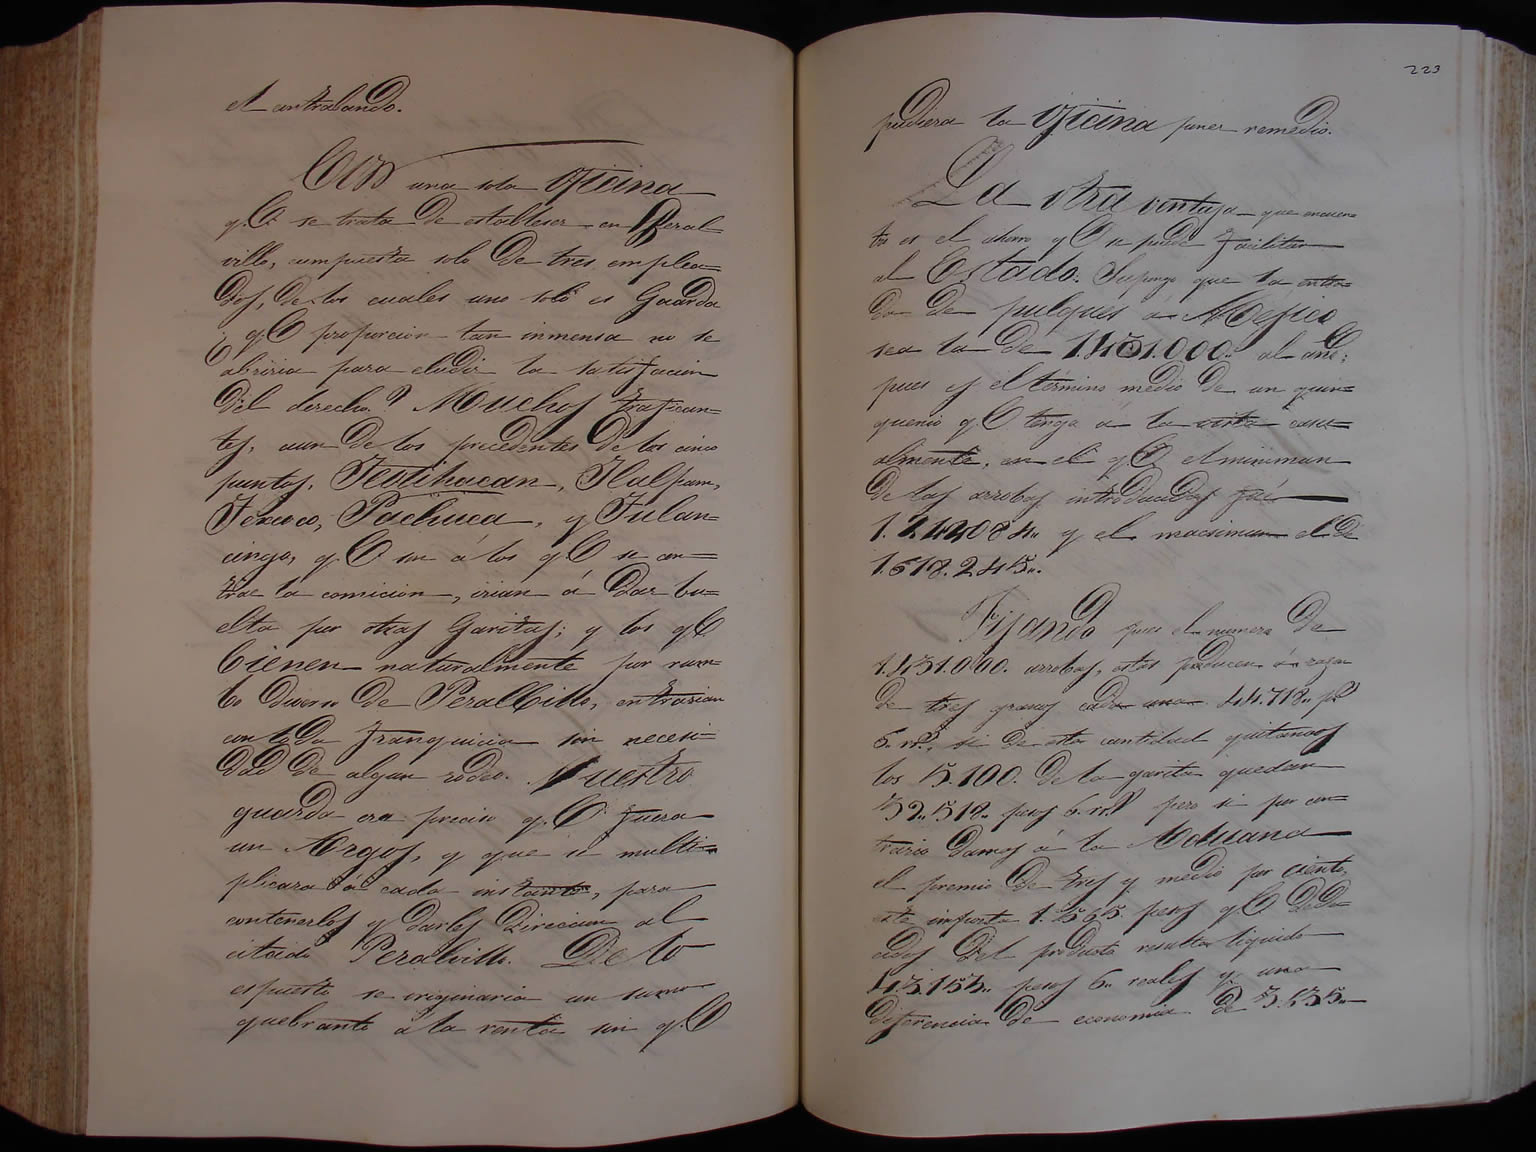 el contrabando.
Con una sola Oficina
q.e se trata de establecer en Peral
villo, compuesta solo de tres emplea=
dos, de los cuales uno solo es Guarda
¿q.e proporcion tan inmensa no se
abriria para eludir la satisfacion
del derecho? Muchos trafican=
tes, aun de los precedentes de los cinco
puntos, Teotihuacan, Tlalpam,
Texcoco, Pachuca, y Tulan=
cingo, q.e son á los q.e se con=
trae la comicion, irian á dar bu=
elta por otras Garitas; y los q.e
bienen naturalmente por rum=
bo diverso de Peralbillo, entrarian
con toda franquicia sin necesi=
dad de algun rodeo. Nuestro
guarda era preciso q.e fuera
un Argos, y que se multi=
plicara á cada instante, para
contenerlos y darles direccion al
citado Peralvillo. De lo
espuesto se originaria un sumo
quebranto á la renta sin q.e
223
pudiera la Oficina poner remedio.
La otra ventaja que encuen
tro es el ahorro q.e se puede facilitar
al Estado. Supongo que la entra=
da de pulques á Mejico
sea la de 1.431.000., al año;
pues es el término medio de un quin=
quenio q.e tengo á la vista casu=
almente, en el q.e el minimun
de las arrobas introducidas fué
1.242084., y el macsimun el de
1.618.245.,
Fijando pues el numero de
1.431.000. arrobas, estas producen á razon
de tres granos cada una 44.718., p.s
6. r.s, si de esta cantidad quitamos
los 5.100. de la garita quedan
39.,518., pesos 6. r.s pero si por con=
trario damos á la Aduana
el premio de tres y medio por ciento,
este importa 1.565. pesos q.e dedu=
cidos del producto resulta liquido
43.153., pesos 6., reales y una
diferencia de economia de 3.635.,